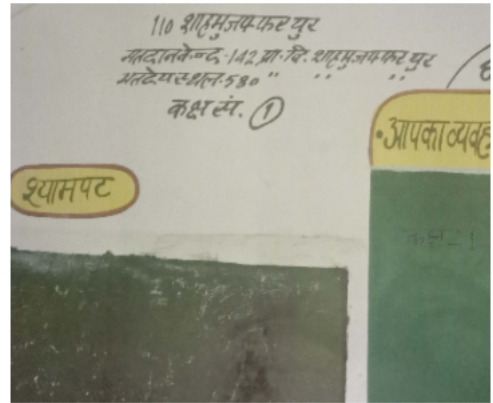 110 शाहमुजफ्फरपुर
मतदान केन्द्र-142 प्रा. वि. शाहमुजफ्फरपुर
मतदेय स्थल-580 " " "
कक्ष सं. 1
• आपका व्यवह
श्यामपट
कक्षा-1